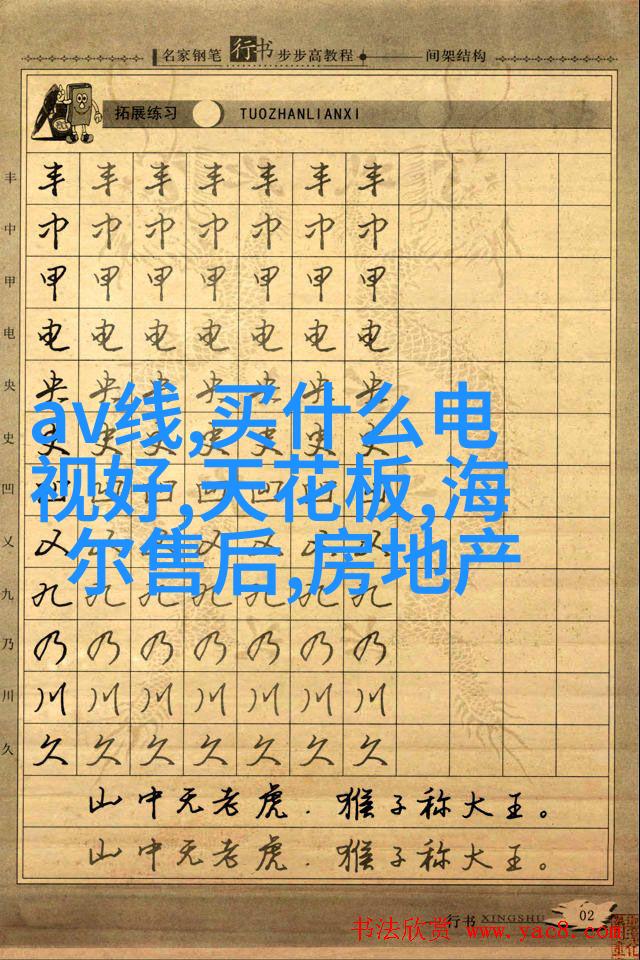 名家钢笔 行书 步步高教程 间架结构
拓展练习 TUOZHANLIANXI
丰 丰 丰 丰 丰 丰 丰 丰
中 中 中 中 中 中 中 中
甲 甲 甲 甲 甲 甲 甲 甲
电 电 电 电 电 电 电 电
央 央 央 央 央 央 央 央
av线,买什么电
史 史 史 史 史 史 史 史
视好,天花板,海
凹 凹 凹 凹 凹 凹 凹 凹
乂 乂 乂 乂 乂 乂 乂 乂
尔售后,房地产
九 九 九 九 九 九 九 九
乃 乃 乃 乃 乃 乃 乃 乃
川 川 川 川 川 川 川 川
久 久 久 久 久 久 久 久
山中无老虎.猴子称大王。
山中无老虎.猴子称大王。
行书 XINGSHU 02
书法欣赏 www.yac8.com